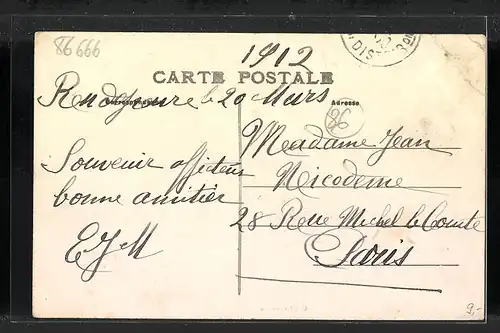 86666
1912
CARTE POSTALE
le 20 Mars
Adresse
86
Madame Jean
Nicodeme
28 Rue Michel le Comte
Paris
Souvenir affectueux
bonne amitier
EJM
DIS
9,-